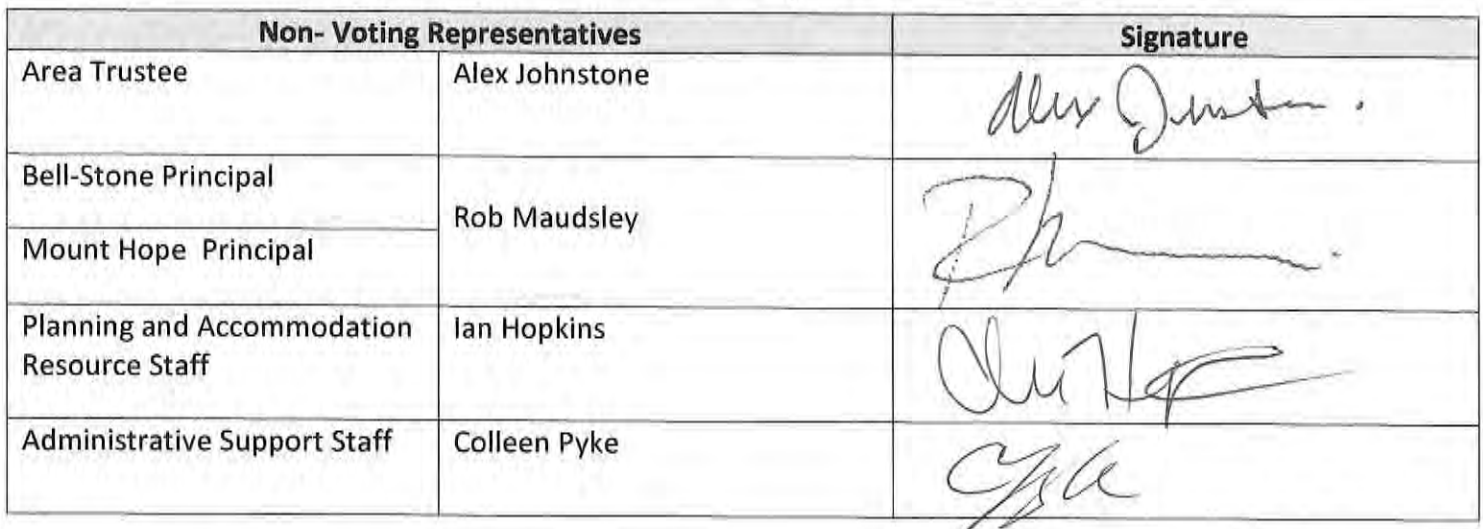 Non- Voting Representatives Signature
Area Trustee Alex Johnstone
Alex
Bell-Stone Principal
Rob Maudsley
Mount Hope Principal
Planning and Accommodation Ian Hopkins
Resource Staff
Administrative Support Staff Colleen Pyke